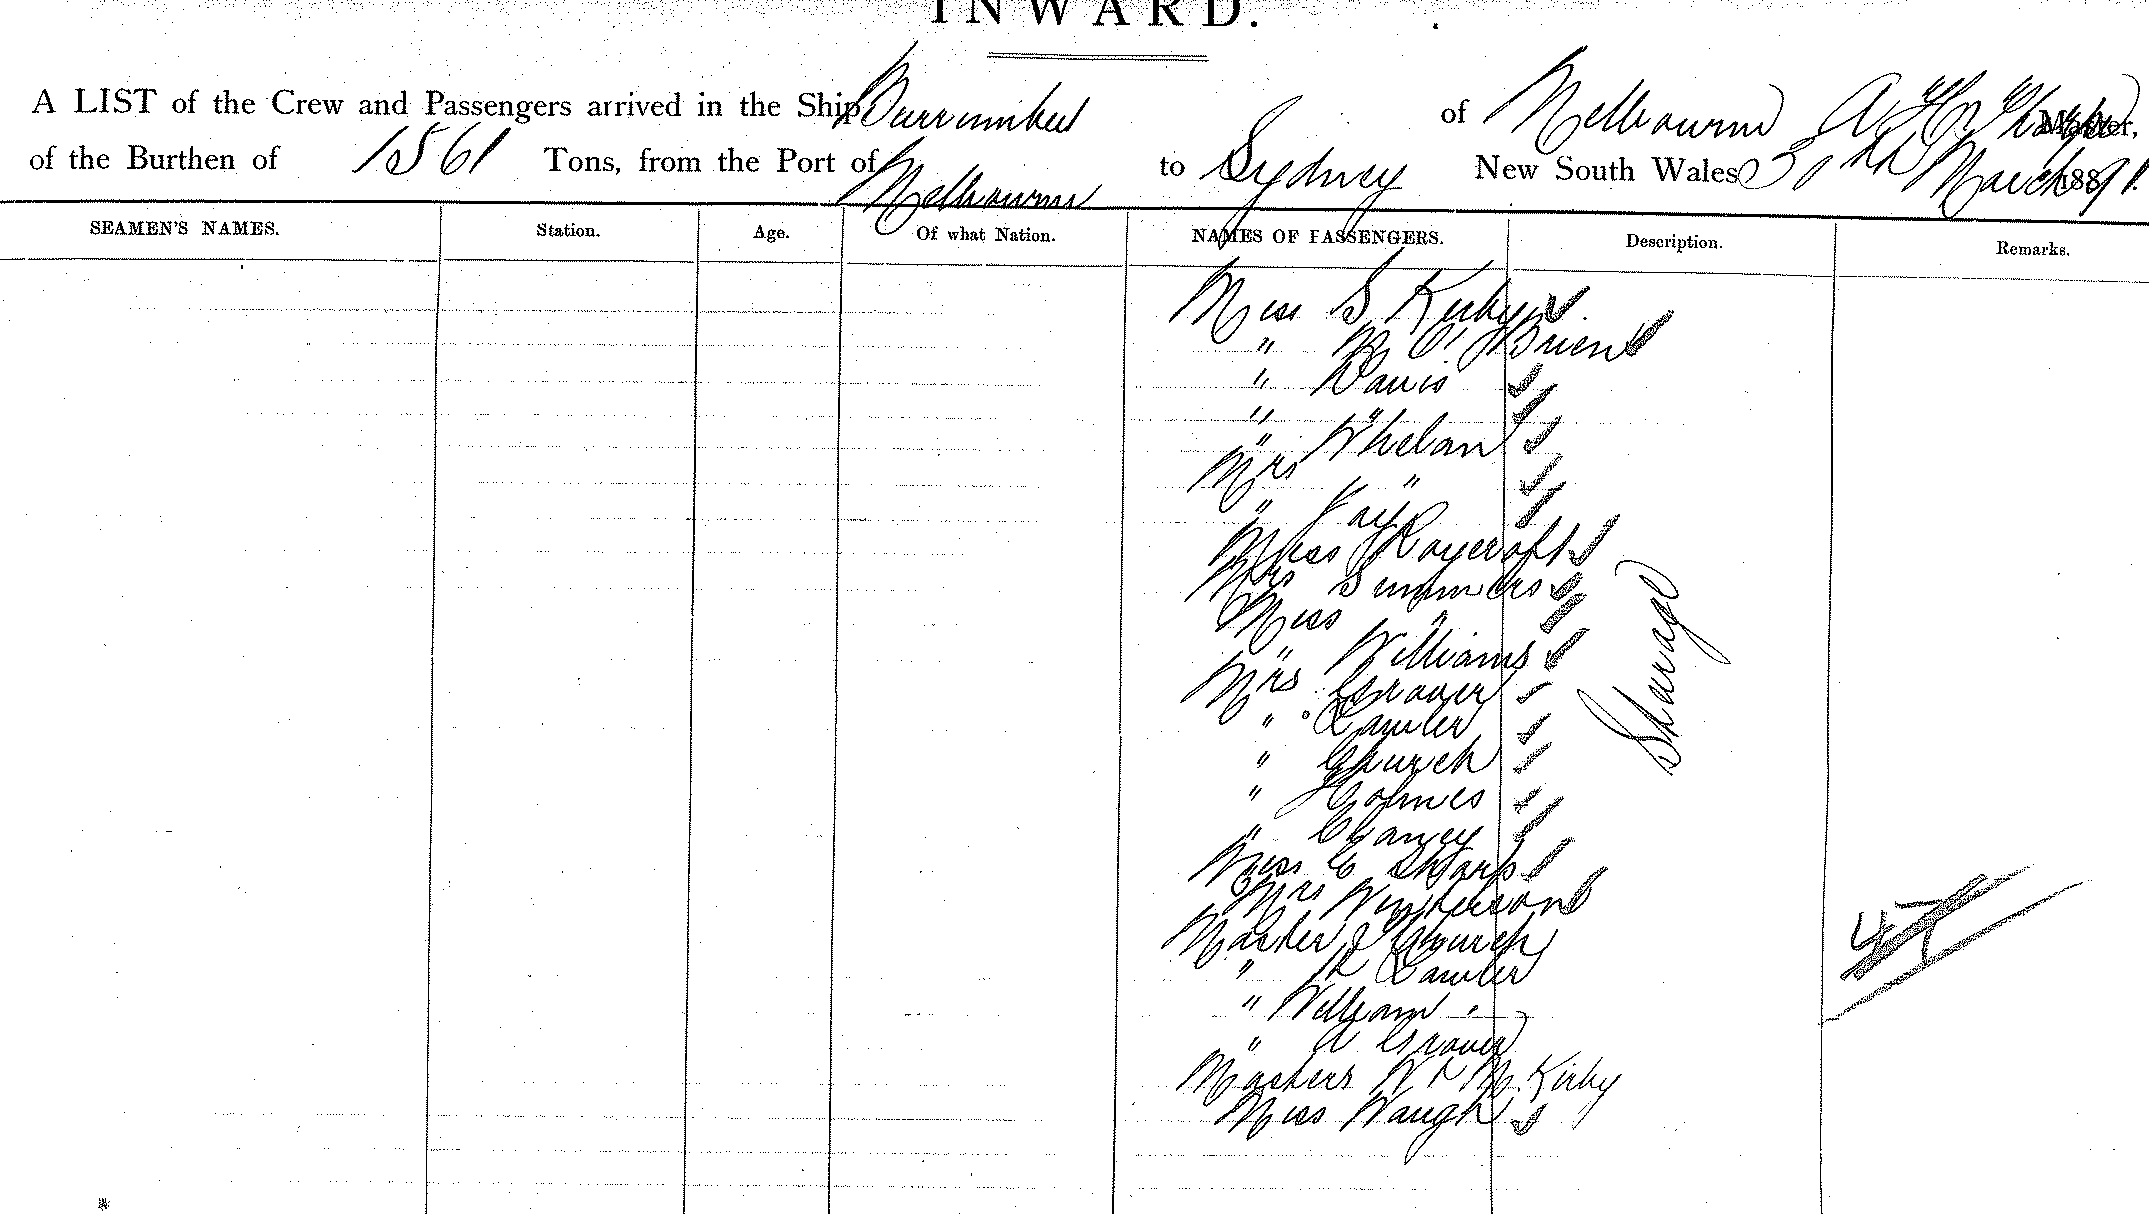 INWARD.
A LIST of the Crew and Passengers arrived in the Ship Burrumbeet of Melbourne Master,
of the Burthen of 1561 Tons, from the Port of Melbourne to Sydney New South Wales 30th March 1891.
SEAMEN'S NAMES. Station. Age. Of what Nation. NAMES OF PASSENGERS. Description. Remarks.
Miss S Kirby
" M C. O'Brien
" Davis
" "
" Whelan
Mrs "
" Kay
Miss Roycroft
Mrs Summers
Miss "
" Williams
Mrs Grover
" Lawler
" Church
" Holmes
" Clancy
Miss C Sharp
Mrs
Master J Church
" R Lawler
" William "
" A Grover
Masters W & M. Kirby
Miss Waugh
Steerage
47